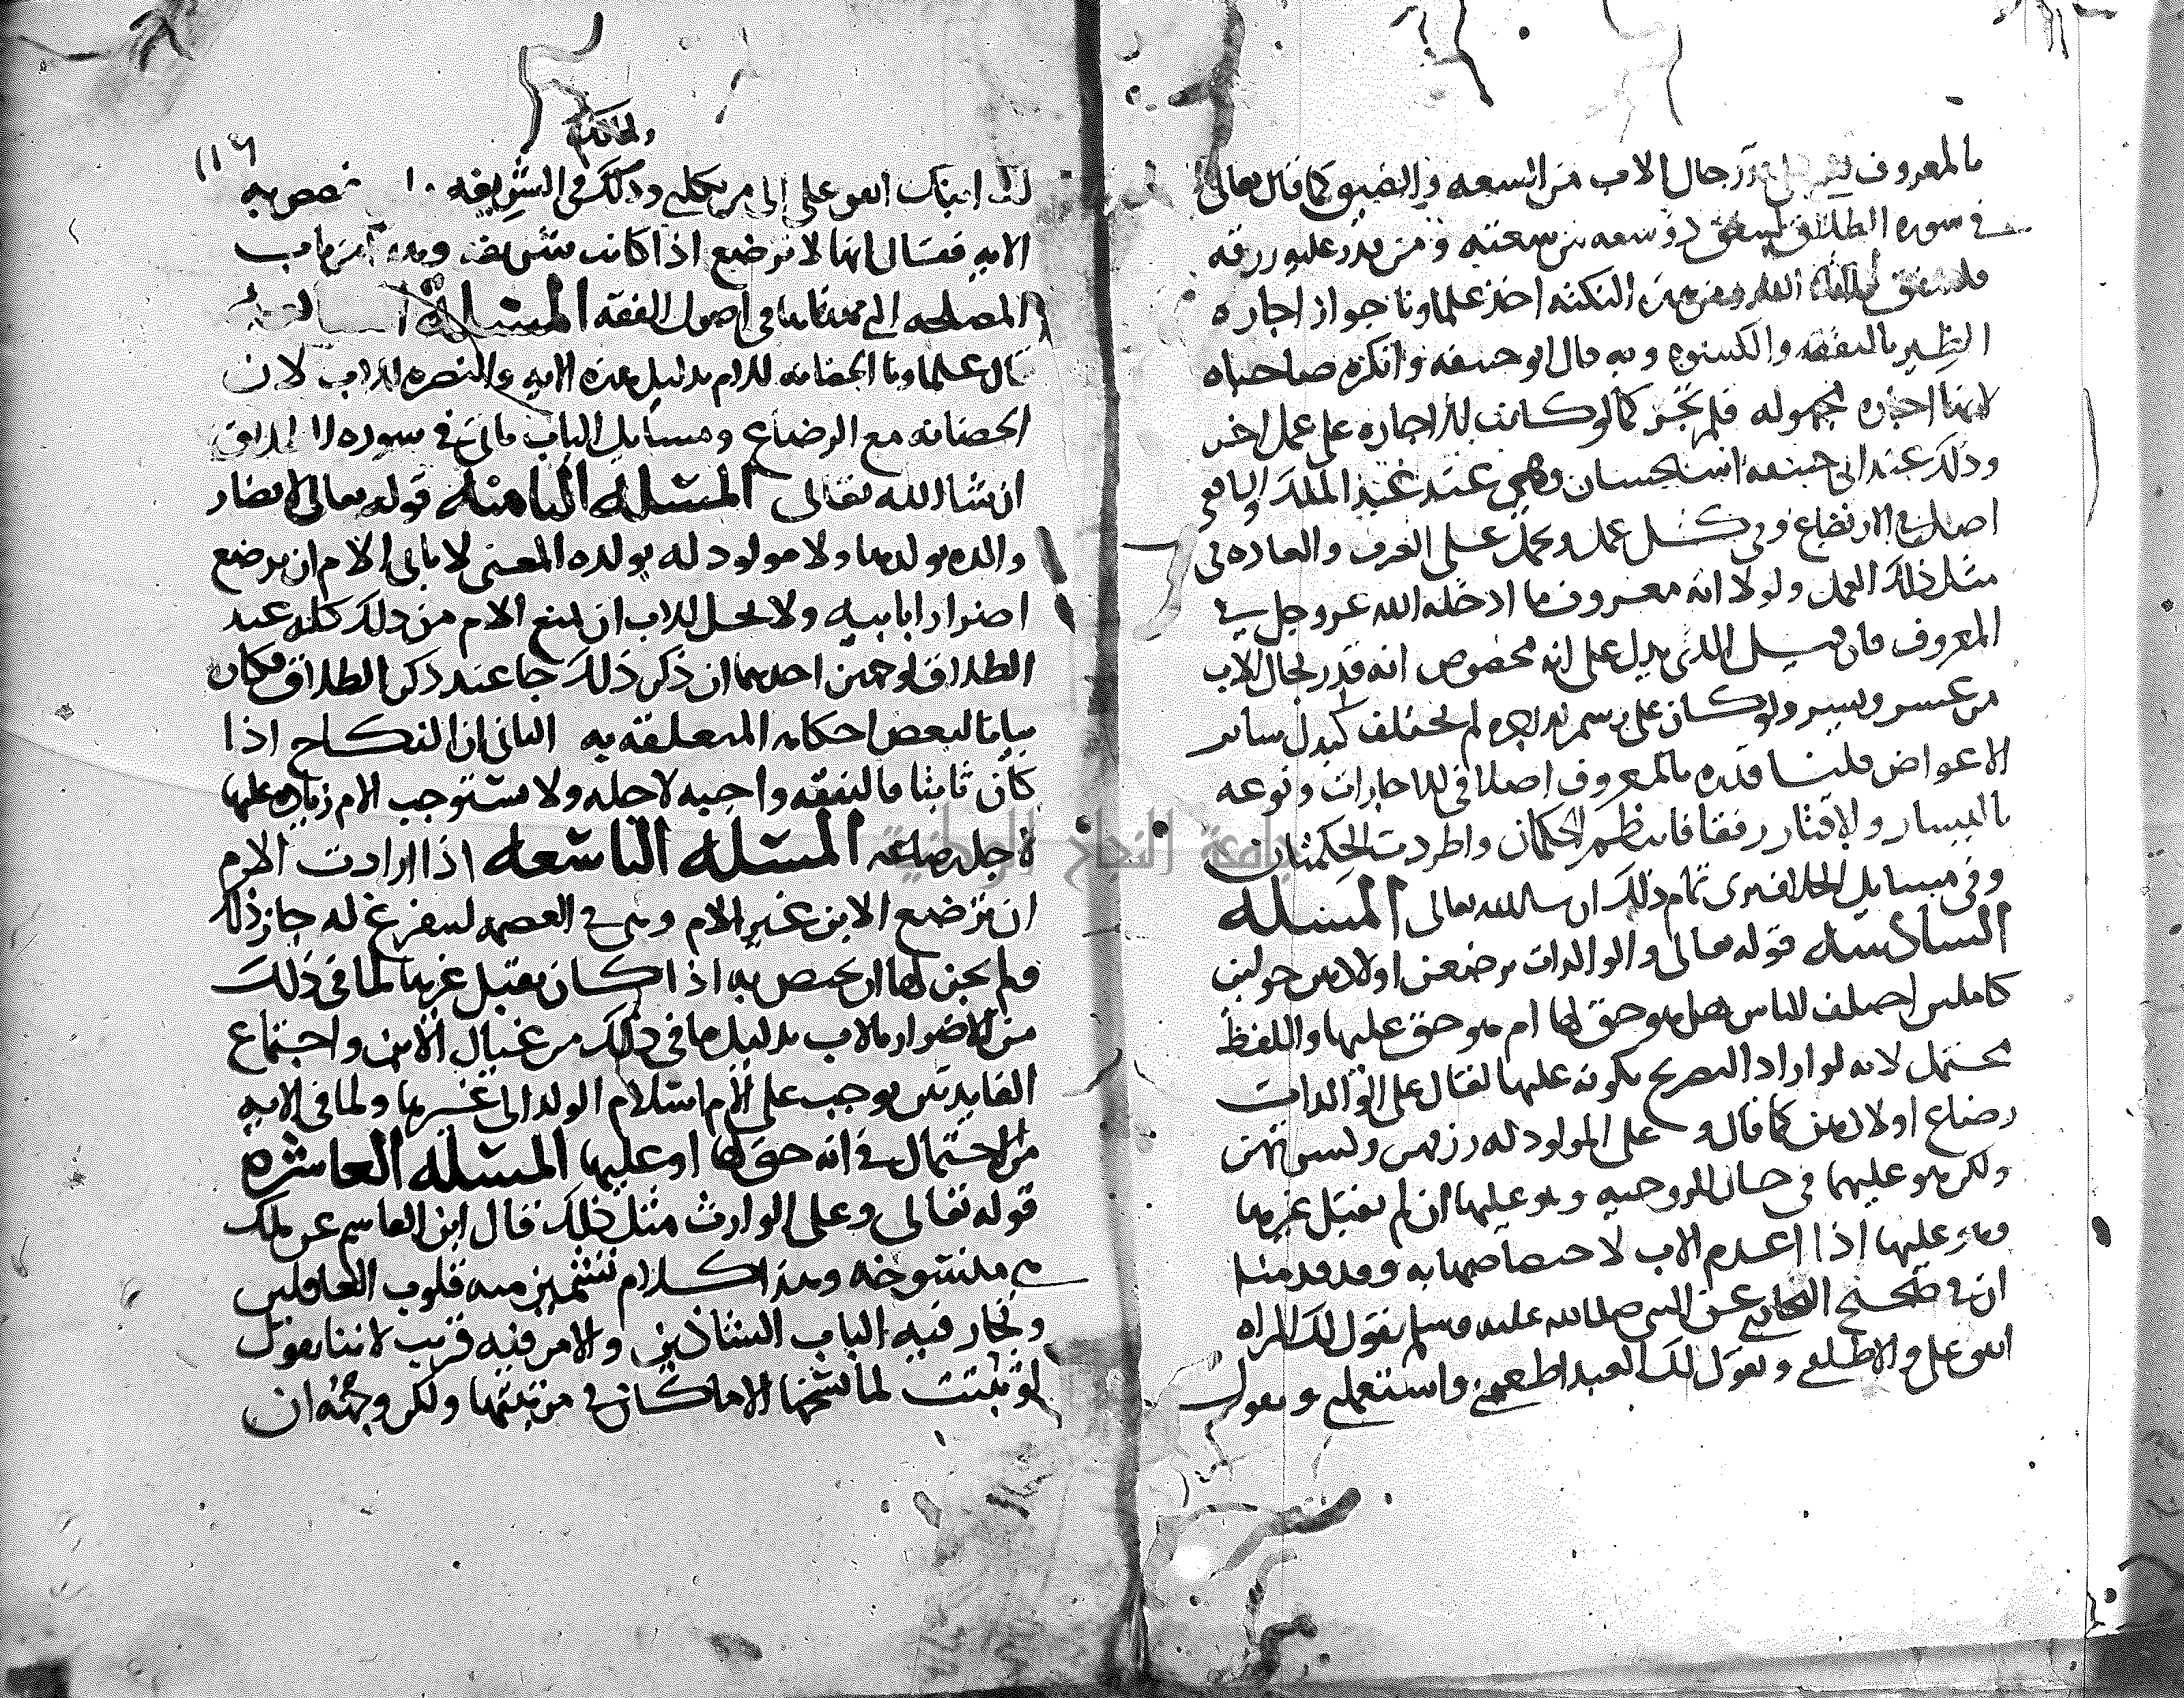 بالمعروف على قدر حال الاب من السعه والضيق كما قال تعالى
في سوره الطلاق لينفق ذو سعه من سعته ومن قدر عليه رزقه
فلينفق مما اتاه الله ومن هذه النكته اخذ علماونا جواز اجاره
الظير بالنفقه والكسوه وبه قال ابو حنيفه وانكره صاحباه
لانها اجاره مجهوله فلم تجز كما لو كانت الاجاره على عمل اخر
وذلك عند ابي حنيفه استحسان وهي عند عند الملك والشافعي
اصل في الارتضاع وفي كل عمل وحمل على العرف والعاده في
مثل ذلك العمل ولولا انه معروف ما ادخله الله عز وجل في
المعروف فان قيل الذي يدل على انه مخصوص انه قدر بحال الاب
من عسر ويسر ولو كان على رسم الاجره لم يختلف كبدل ساير
الاعواض قلنا قدره بالمعروف اصلا في الاجارات ونوعه
باليسار والاقتار رفقا فانتظم الحكمان واطردت الحكمتان
وفي مسايل الخلاف ترى تمام ذلك ان شا الله تعالى المسله
السادسه قوله تعالى والوالدات يرضعن اولادهن حولين
كاملين اختلف الناس هل هو حق لها ام هو حق عليها واللفظ
محتمل لانه لو اراد التصريح بكونه عليها لقال على الوالدات
رضاع اولادهن كما قال وعلى المولود له رزقهن وكسوتهن
ولكن هو عليها في حال الزوجيه وهو عليها ان لم يقبل غيرها
وهو عليها اذا اعدم الاب لاختصاصها به وقد قدمنا
ان في صحيح البخاري عن النبي صلى الله عليه وسلم تقول لك المراه
انفق علي والا طلقني ويقول لك العبد اطعمني واستعملني ويقول
ولذلك
١١٦
لك ابنك انفق علي الى من تكلني وذلك في الشريفه الا تختص به
الايه فقال انها لا ترضع اذا كانت شريفه وهذا من باب
المصلحه التي مهدناها في اصول الفقه المسله السابعه
قال علماونا الحضانه للام بدليل هذه الايه والنصره للاب لان
الحضانه مع الرضاع ومسايل الباب تاتي في سوره الطلاق
ان شا الله تعالى المسله الثامنه قوله تعالى لا تضار
والده بولدها ولا مولود له بولده المعنى لا تابى الام ان ترضع
اضرارا بابيه ولا يحل للاب ان يمنع الام من ذلك كله عند
الطلاق لوجهين احدهما ان ذكر ذلك جا عند ذكر الطلاق فكان
بيانا لبعض احكامه المتعلقه به الثاني ان النكاح اذا
كان ثابتا فالنفقه واجبه لاجله ولا تستوجب الام زياده عليها
لاجل رضاعه المسله التاسعه اذا ارادت الام
ان ترضع الابن غير الام وهي في العصمه لتتفرغ له جاز ذلك
ولم يجز لها ان تختص به اذا كان يقبل غيرها لما في ذلك
من الاضرار بالاب بدليل ما في ذلك من غيال الابن واجتماع
الفايدتين يوجب على الام اسلام الولد الى غيرها ولما في الايه
من الاحتمال في انه حق لها او عليها المسله العاشره
قوله تعالى وعلى الوارث مثل ذلك قال ابن القاسم عن ملك
هي منسوخه وهذا كلام تشمئز منه قلوب الغافلين
وتحار فيه الباب الشاذين والامر فيه قريب لاننا نقول
لو ثبتت لما نسخها الا ما كان في مرتبتها ولكن وجهه ان